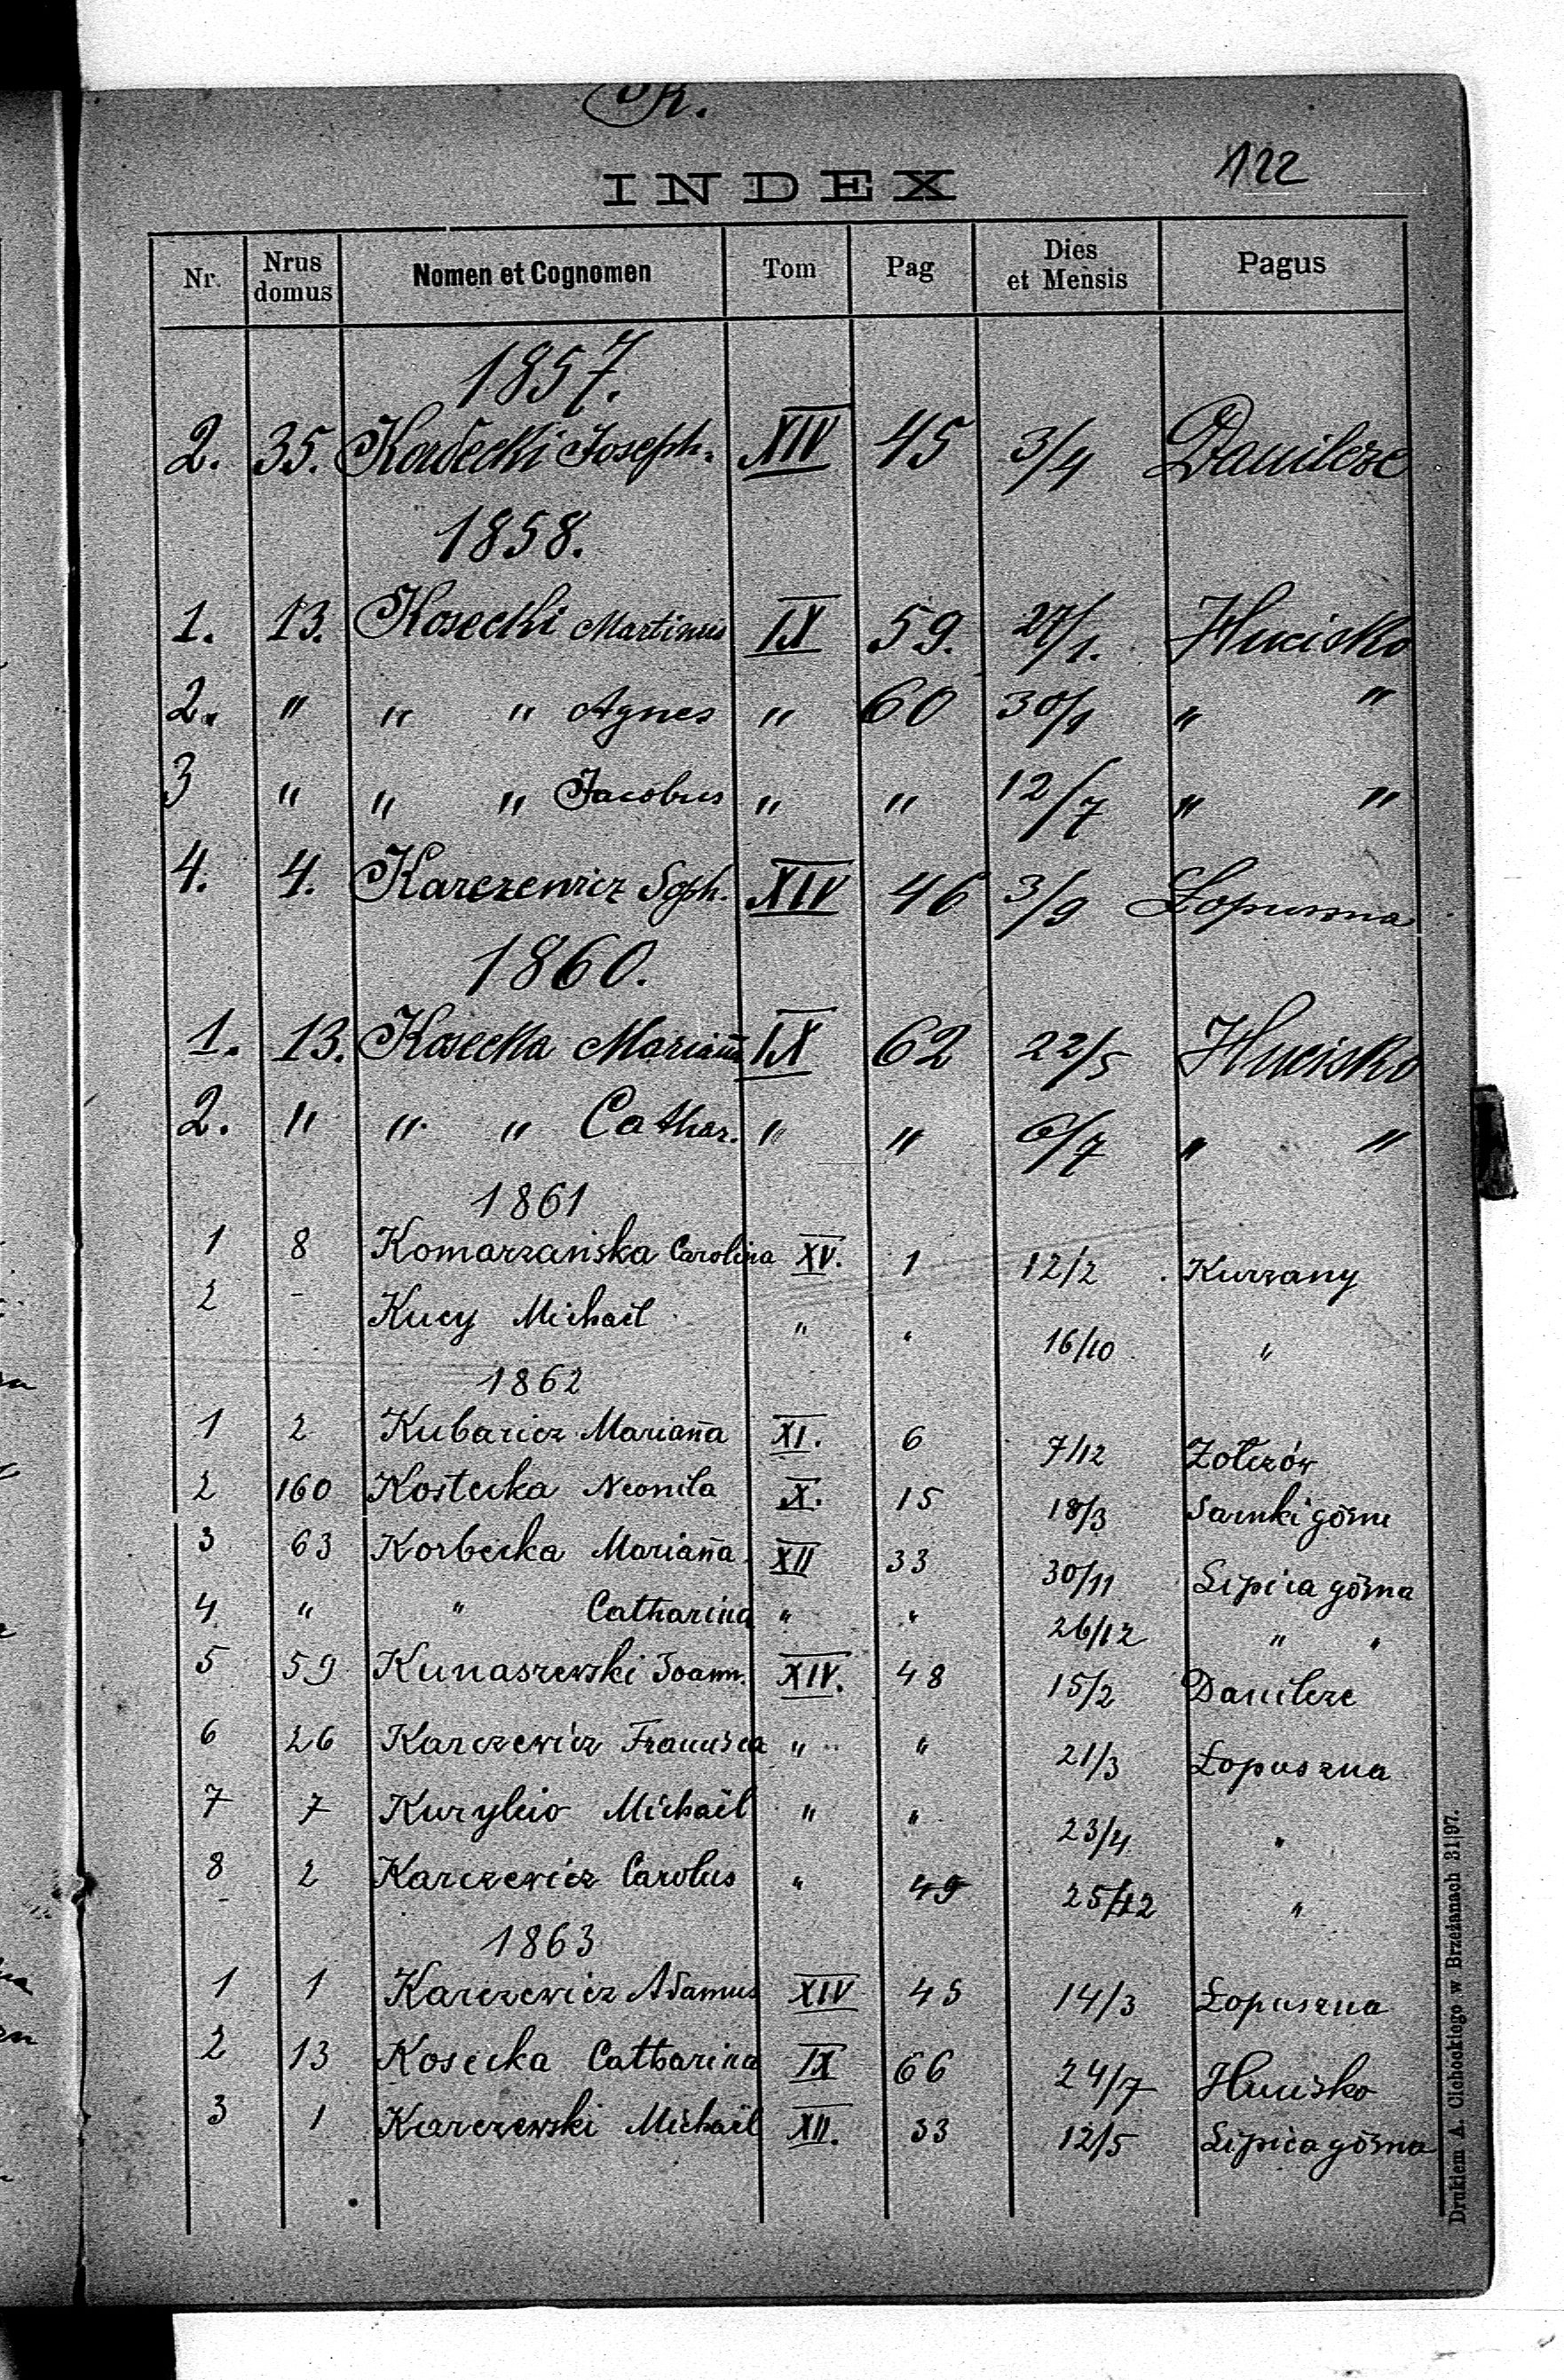 K.
122
INDEX
Nr. Nrus domus Nomen et Cognomen Tom Pag Dies et Mensis Pagus
1857.
2. 35. Kordecki Joseph. XIV 45 3/4 Danilcze
1858.
1. 13. Kosecki Martinus IX 59. 27/1. Hucisko
2. " " " Agnes " 60 30/1 " "
3 " " " Jacobus " " 12/7 " "
4. 4. Karczewicz Soph. XIV 46 3/9 Łopuszna
1860.
1. 13. Kosecka Mariana IX 62 22/5 Hucisko
2. " " " Cathar. " " 6/7 " "
1861
1 8 Komarzańska Carolina XV. 1 12/2 Kurzany
2 - Kucy Michaël " " 16/10 "
1862
1 2 Kubaricz Mariana XI. 6 7/12 Żołczów
2 160 Kostecka Neonila X. 15 18/3 Sarnki górne
3 63 Korbecka Mariana XII 33 30/11 Lipica górna
4 " " Catharina " " 26/12 " "
5 59 Kunaszewski Joann. XIV. 48 15/2 Danilcze
6 26 Karczewicz Francisca " " 21/3 Łopuszna
7 7 Kurylcio Michaël " " 23/4 "
8 2 Karczewicz Carolus " 49 25/12 "
1863
1 1 Karczewicz Adamus XIV 45 14/3 Łopuszna
2 13 Kosecka Catharina IX 66 24/7 Hucisko
3 1 Karczewski Michaël XII. 33 12/5 Lipica górna
Drukiem A. Cichockiego w Brzeżanach 31|97.